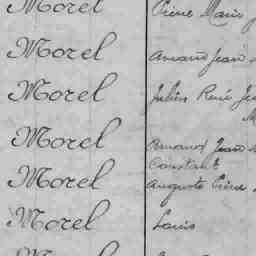 Morel Pière Marie
Morel Amand Jean
Morel Julien René
Morel Amand Jean
Constant
Morel Auguste Pière
Morel Louis
Morel